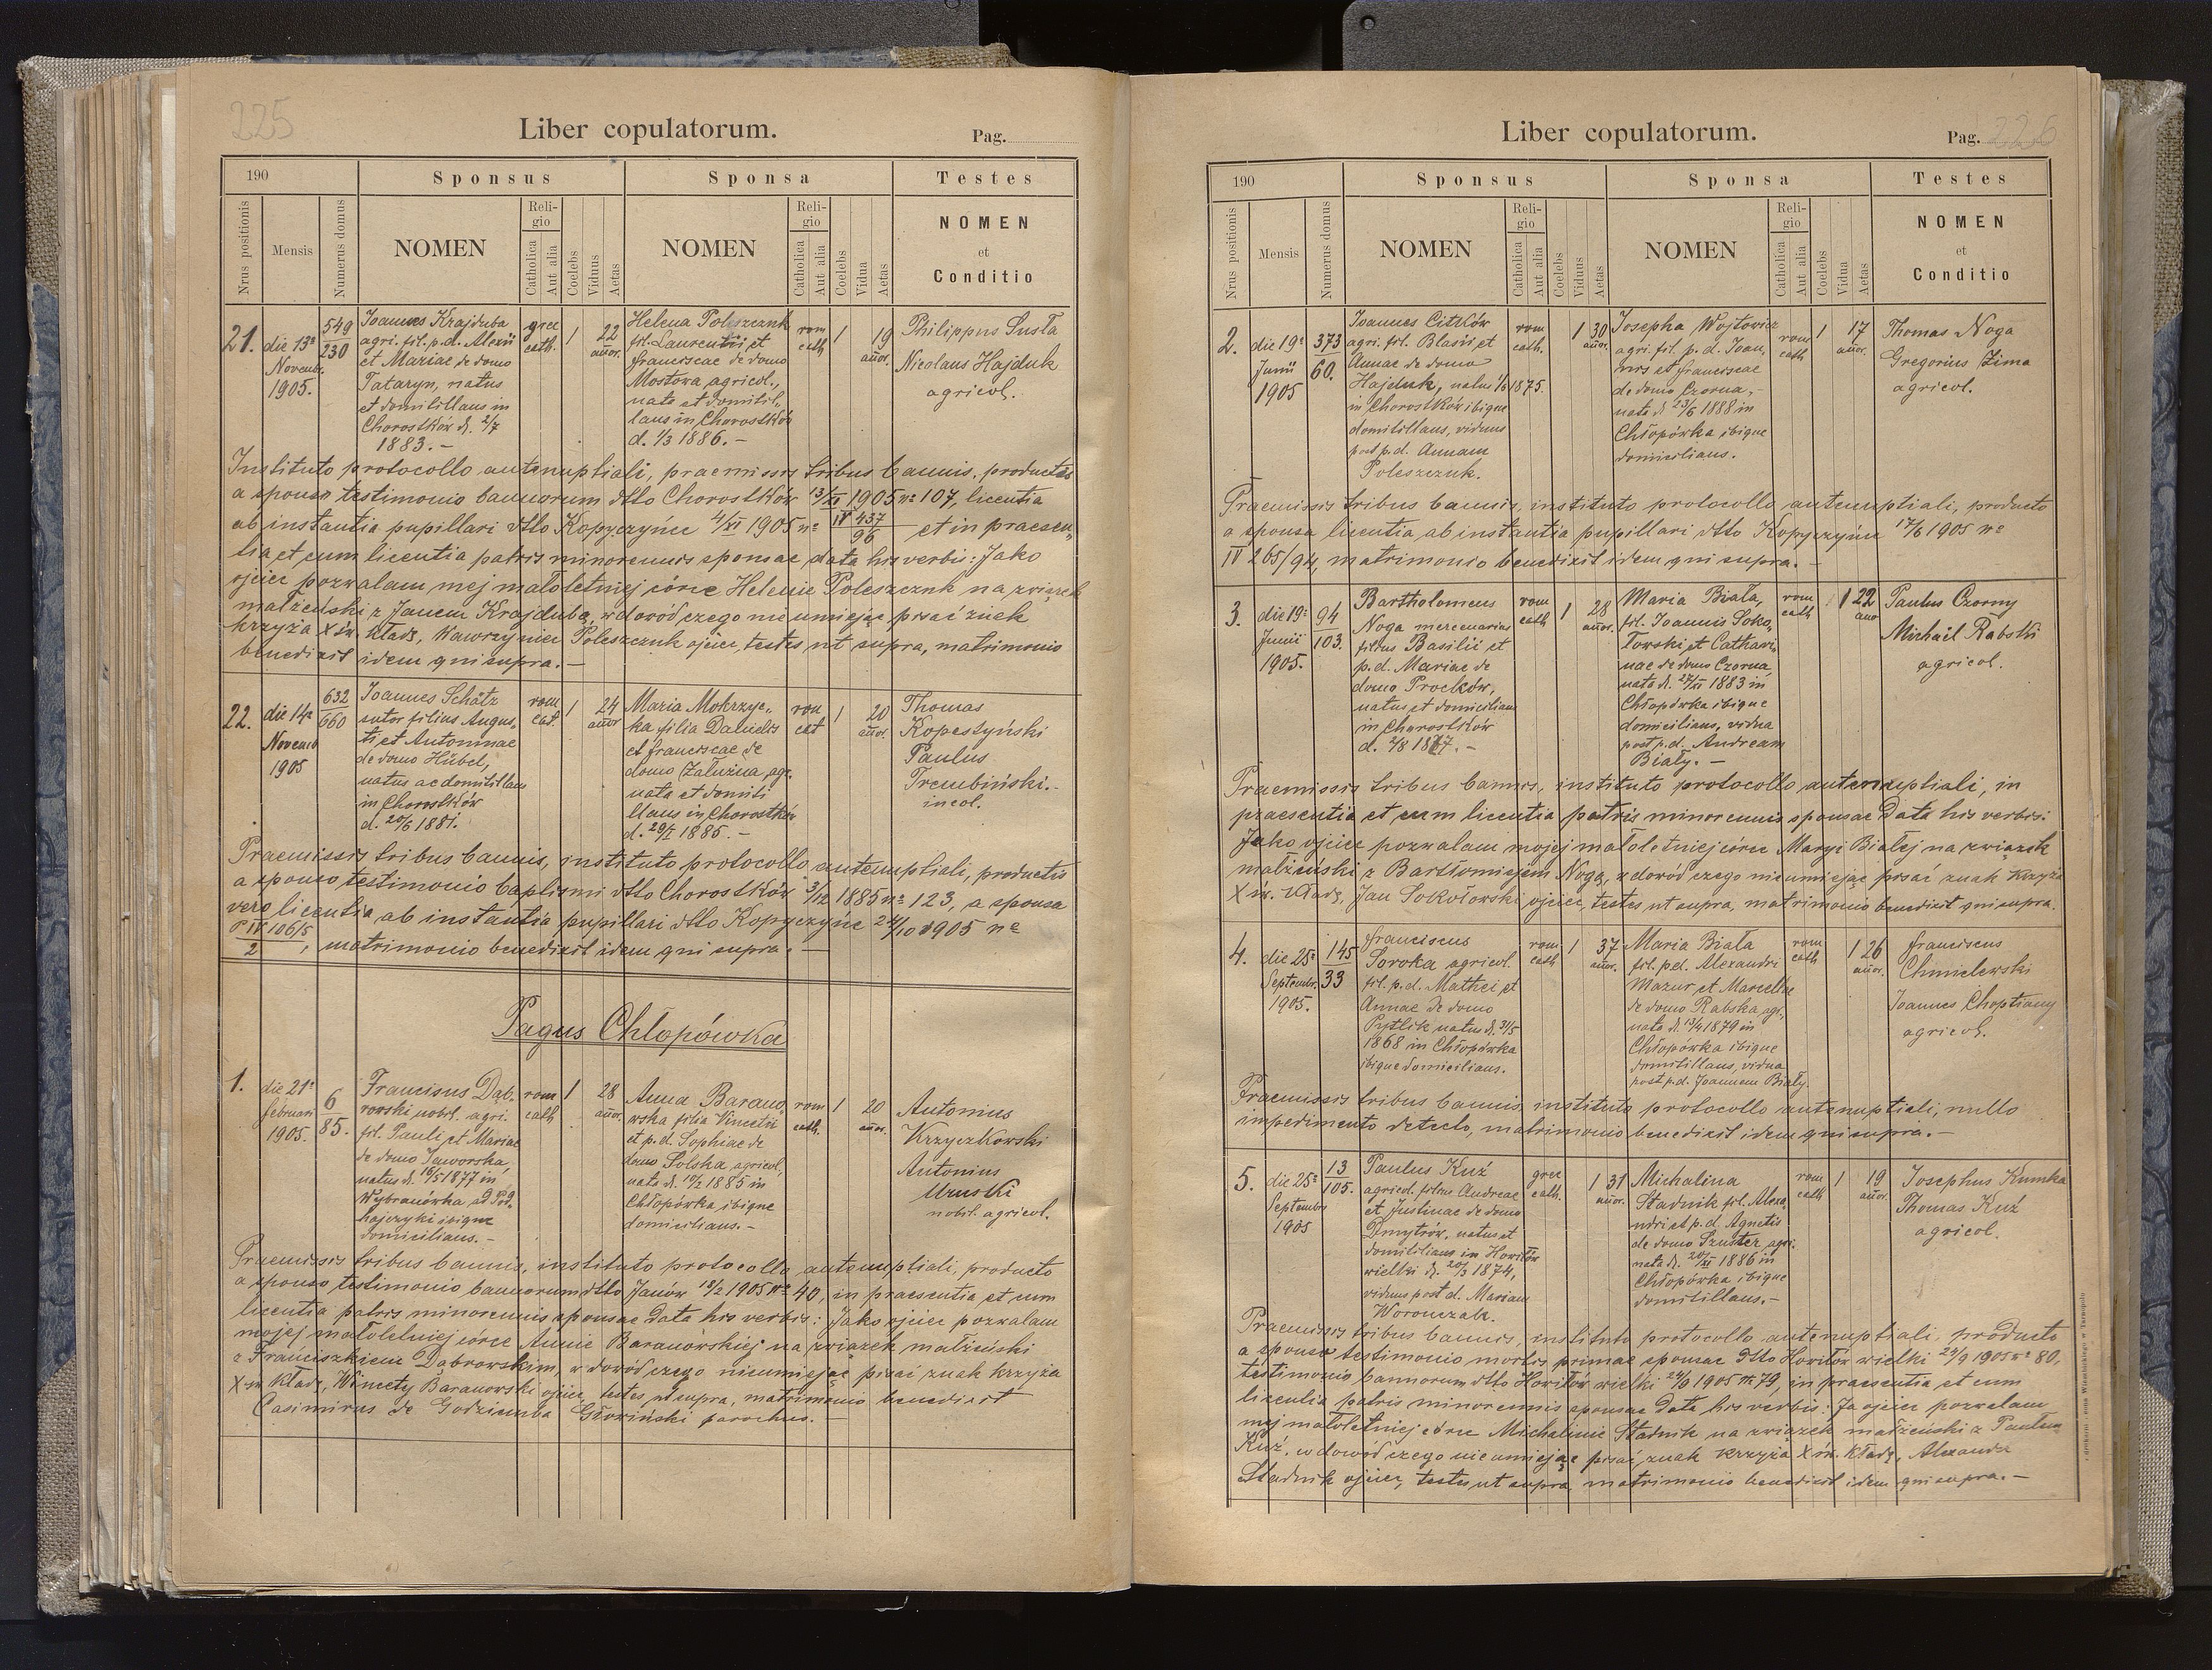 225
Liber copulatorum.
Pag.
190
Sponsus
Sponsa
Testes
Nrus positionis
Mensis
Numerus domus
NOMEN
Religio
Catholica
Aut alia
Coelebs
Viduus
Aetas
NOMEN
Religio
Catholica
Aut alia
Coelebs
Vidua
Aetas
NOMEN
et
Conditio
21.
die 13a
Novembr.
1905.
549
230
Joannes Krajduba
agri. fil. p.d. Alexii
et Mariae de domo
Tataryn, natus
et domicilians in
Chorostków d. 2/7
1883.-
grec
cath.
1
22
annor.
Helena Poleszczuk
fil. Laurentii et
Franciscae de domo
Mostowa, agricol.,
nata et domicil„
lans in Chorostków
d. 1/3 1886.-
rom
cath
1
19
annor.
Philippus Susła
Nicolaus Hajduk
agricol.
Instituto protocollo antenuptiali, praemissis tribus bannis, productis
a sponso testimonio bannorum dtto Chorostków 13/XI 1905 no 107, licentia
ab instantia pupillari dtto Kopyczyńce 4/XI 1905 no IV 437/96 et in praesen„
tia et cum licentia patris minorennis sponsae data his verbis: Jako
ojciec pozwalam mej małoletniej córce Helenie Poleszczuk na związek
małżeński z Janem Krajdubą, w dowód czego nieumiejąc pisać znak
krzyża X św. kładę, Wawrzyniec Poleszczuk ojciec, testes ut supra, matrimonio
benedixit idem qui supra.-
22.
die 14a
Novemb
1905
632
660
Joannes Schätz
sutor filius Augus„
ti et Antoninae
de domo Hübel,
natus ac domicillans
in Chorostków
d. 20/6 1881.
rom
cat.
1
24
annor
Maria Mokrzyc„
ka filia Danielis
et Franciscae de
domo Załuzna, agr.
nata et domici
llans in Chorostków
d. 29/I 1885.-
rom
cat
1
20
annor.
Thomas
Kopestyński
Paulus
Trembiński.-
incol.
Praemissis tribus bannis, instituto protocollo antenuptiali, productis
a sponso testimonio baptismi dtto Chorostków 3/12 1885 no 123, a sponsa
vero licentia ab instantia pupillari dtto Kopyczyńce 24/10 1905 ne
P IV 106/5
2 , matrimonio benedixit idem qui supra.-
Pagus Chłopówka
1.
die 21a
februari
1905.
6
85.
Franciscus Dąb„
rowski nobil. agri.
fil. Pauli et Mariae
de domo Jaworska,
natus d. 16/5 1877 in
Wybranówka ad Pod„
hajczyki ibique
domicilians.-
rom
cath
1
28
annor.
Anna Barano„
wska filia Vincetii
et p.d. Sophiae de
domo Solska, agricol,
nata d. 17/2 1885 in
Chłopówka ibique
domicilians.-
rom
cath.
1
20
annor.
Antonius
Krzyczkowski
Antonius
Uruski
nobil. agricol.
Praemissis tribus bannis, instituto protocollo antenuptiali, producto
a sponso testimonio bannorum dtto Janów 18/2 1905 no 40, in praesentia et cum
licentia patris minorennis sponsae data his verbis: Jako ojciec pozwalam
mojej małoletniej córce Annie Baranowskiej na związek małżeński
z Franciszkiem Dąbrowskim, w dowód czego nieumiejąc pisać znak krzyża
X św. kładę, Wincety Baranowski ojciec, testes ut supra, matrimonio benedixit
Casimirus de Godziemba Głowiński parochus.-
Liber copulatorum.
Pag. 226
190
Sponsus
Sponsa
Testes
Nrus positionis
Mensis
Numerus domus
NOMEN
Religio
Catholica
Aut alia
Coelebs
Viduus
Aetas
NOMEN
Religio
Catholica
Aut alia
Coelebs
Vidua
Aetas
NOMEN
et
Conditio
2.
die 19a
Junii
1905
373
60.
Joannes Citków
agri. fil. Blasii et
Annae de domo
Hajduk, natus 1/6 1875.
in Chorostków ibique
domicillans, viduus
post p.d. Annam
Poleszczuk.
rom
cath.
1
30
annor.
Josepha Wojtowicz
agri. fil. p.d. Joan„
nis et Franciscae
de domo Czorna,-
nata d. 23/6 1888 in
Chłopówka ibique
domicilians.
rom
cath
1
17
annor.
Thomas Noga
Gregorius Zima
agricol.
Praemissis tribus bannis, instituto protocollo antenuptiali, producto
a sponsa licentia ab instantia pupillari dtto Kopyczyńce 17/6 1905 ne
IV 265/94, matrimonio benedixit idem qui supra.-
3.
die 19a
Junii
1905.
94
103.
Bartholomeus
Noga mercenarius
filius Basilii et
p.d. Mariae de
domo Prockow,
natus et domicilians
in Chorostków
d. 2/8 1877.-
rom
cath
1
28
annor.
Maria Biała,
fil. Joannis Soko„
łowski et Cathari„
nae de domo Czorna
nata d. 27/II 1883 in
Chłopówka ibique
domicilians, vidua
post p.d. Andream
Biały.-
rom
cath
1
22
anno
Paulus Czorny
Michaël Rabski
agricol.
Praemissis tribus bannis, instituto protocollo antenuptiali, in
praesentia et cum licentia patris minorennis sponsae data his verbis:
Jako ojciec pozwalam mojej małoletniej córce Maryi Białej na związek
małżeński z Bartłomiejem Nogą, w dowód czego nieumiejąc pisać znak krzyża
X św. kładę, Jan Sokołowski ojciec, testes ut supra, matrimonio benedixit qui supra.
4.
die 25a
Septembr.
1905.
145
33
Franciscus
Soroka agricol.
fil. p.d. Mathei et
Annae de domo
Pytlik natus d. 31/5
1868 in Chłopówka
ibique domicilians.
rom
cath
1
37
annor.
Maria Biała
fil. p.d. Alexandri
Mazur et Marcellae
de domo Rabska, agr.,
nata d. 13/4 1879 in
Chłopówka ibique
domicillans, vidua
post p.d. Joannem Biały.
rom
cath
1
26
annor.
Franciscus
Chmielewski
Joannes Choptiany
agricol.
Praemissis tribus bannis, instituto protocollo antenuptiali, nullo
impedimento detecto, matrimonio benedixit idem qui supra.-
5.
die 25a
Septembr
1905
13
105.
Paulus Kuź
agricol. filius Andreae
et Justinae de domo
Dmytrów, natus et
domicilians in Howiłów
wielki d. 20/3 1874,
viduus post d. Mariam
Woronczak.
grec
cath.
1
31
annor.
Michalina
Stadnik fil. Alexa„
ndri et p.d. Agnetis
de domo Szuster, agri.
nata d. 20/XI 1886 in
Chłopówka ibique
domicillans.-
rom
cath
1
19
annor.
Josephus Kumka
Thomas Kuź
agricol.
Praemissis tribus bannis, instituto protocollo antenuptiali, producto
a sponso testimonio mortis primae sponsae dtto Howiłów wielki 24/9 1905 no 80,
testimonio bannorum dtto Howiłów wielki 24/9 1905 no 79, in praesentia et cum
licentia patris minorennis sponsae data his verbis: Ja ojciec pozwalam
mej małoletniej córce Michalinie Stadnik na związek małżeński z Pawłem
Kuź, w dowód czego nieumiejąc pisać, znak krzyża X św. kładę, Alexander
Stadnik ojciec, testes ut supra, matrimonio benedixit idem qui supra.-